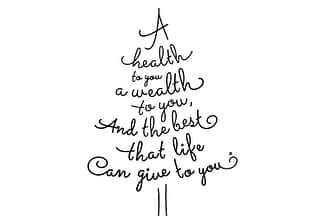 A
health
to you
a wealth
to you,
And the best
that life
Can give to you.